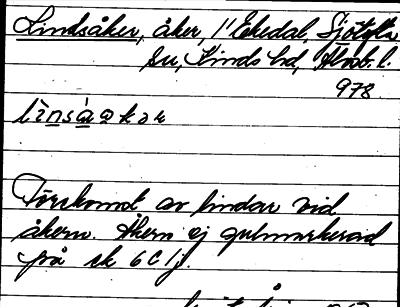 Lindsåker, åker, 1' Ekedal, Sjötofta
sn, Kinds hd, Älvsb. l.
978
Förekomst av lindar vid
åkern. Åkern ej gulmarkerad
på ek 6C 1j.